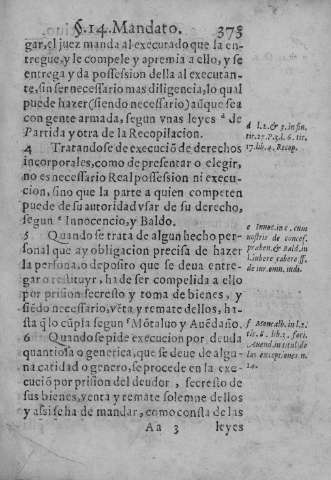 §.14. Mandato. 373
gar, el juez manda al executado que la en-
tregue, y le compele y apremia a ello, y se
entrega y da possession della al executan-
te, sin ser necessario mas diligencia, lo qual
puede hazer (siendo necessario) aũque sea
con gente armada, segun vnas leyes d de
Partida y otra de la Recopilacion.
4 Tratandose de execuciõ de derechos
incorporales, como de presentar o elegir,
no es necessario Real possession ni execu-
cion, sino que la parte a quien competen
puede de su autoridad vsar de su derecho,
segun e Innocencio, y Baldo.
5 Quando se trata de algun hecho per-
sonal que ay obligacion precisa de hazer
la persona, o deposito que se deua entre-
gar o restituyr, ha de ser compelida a ello
por prision secresto y toma de bienes, y
siẽdo necessario, vẽta y remate dellos, ha-
sta q̃ lo cũpla segun f Mõtaluo y Auẽdaño.
6 Quando se pide execucion por deuda
quantiosa o generica, que se deue de algu-
na cãtidad o genero, se procede en la exe-
cuciõ por prision del deudor, secresto de
sus bienes, venta y remate solemne dellos
y assi se ha de mandar, como consta de las
Aa 3 leyes
d l. 2. & 3. in fin
tit. 27. P. 3. l. 6. tit.
17. lib. 4. Recop.
e Innoc. in c. cum
nostris de concess.
præben. & Bald. in
l. iubere cauere ff.
de iur. omn. iudi.
f Montalb. in l. 2.
tit. 8. lib. 3. fori.
Auend. in titul. de
las exceptiones n.
24.